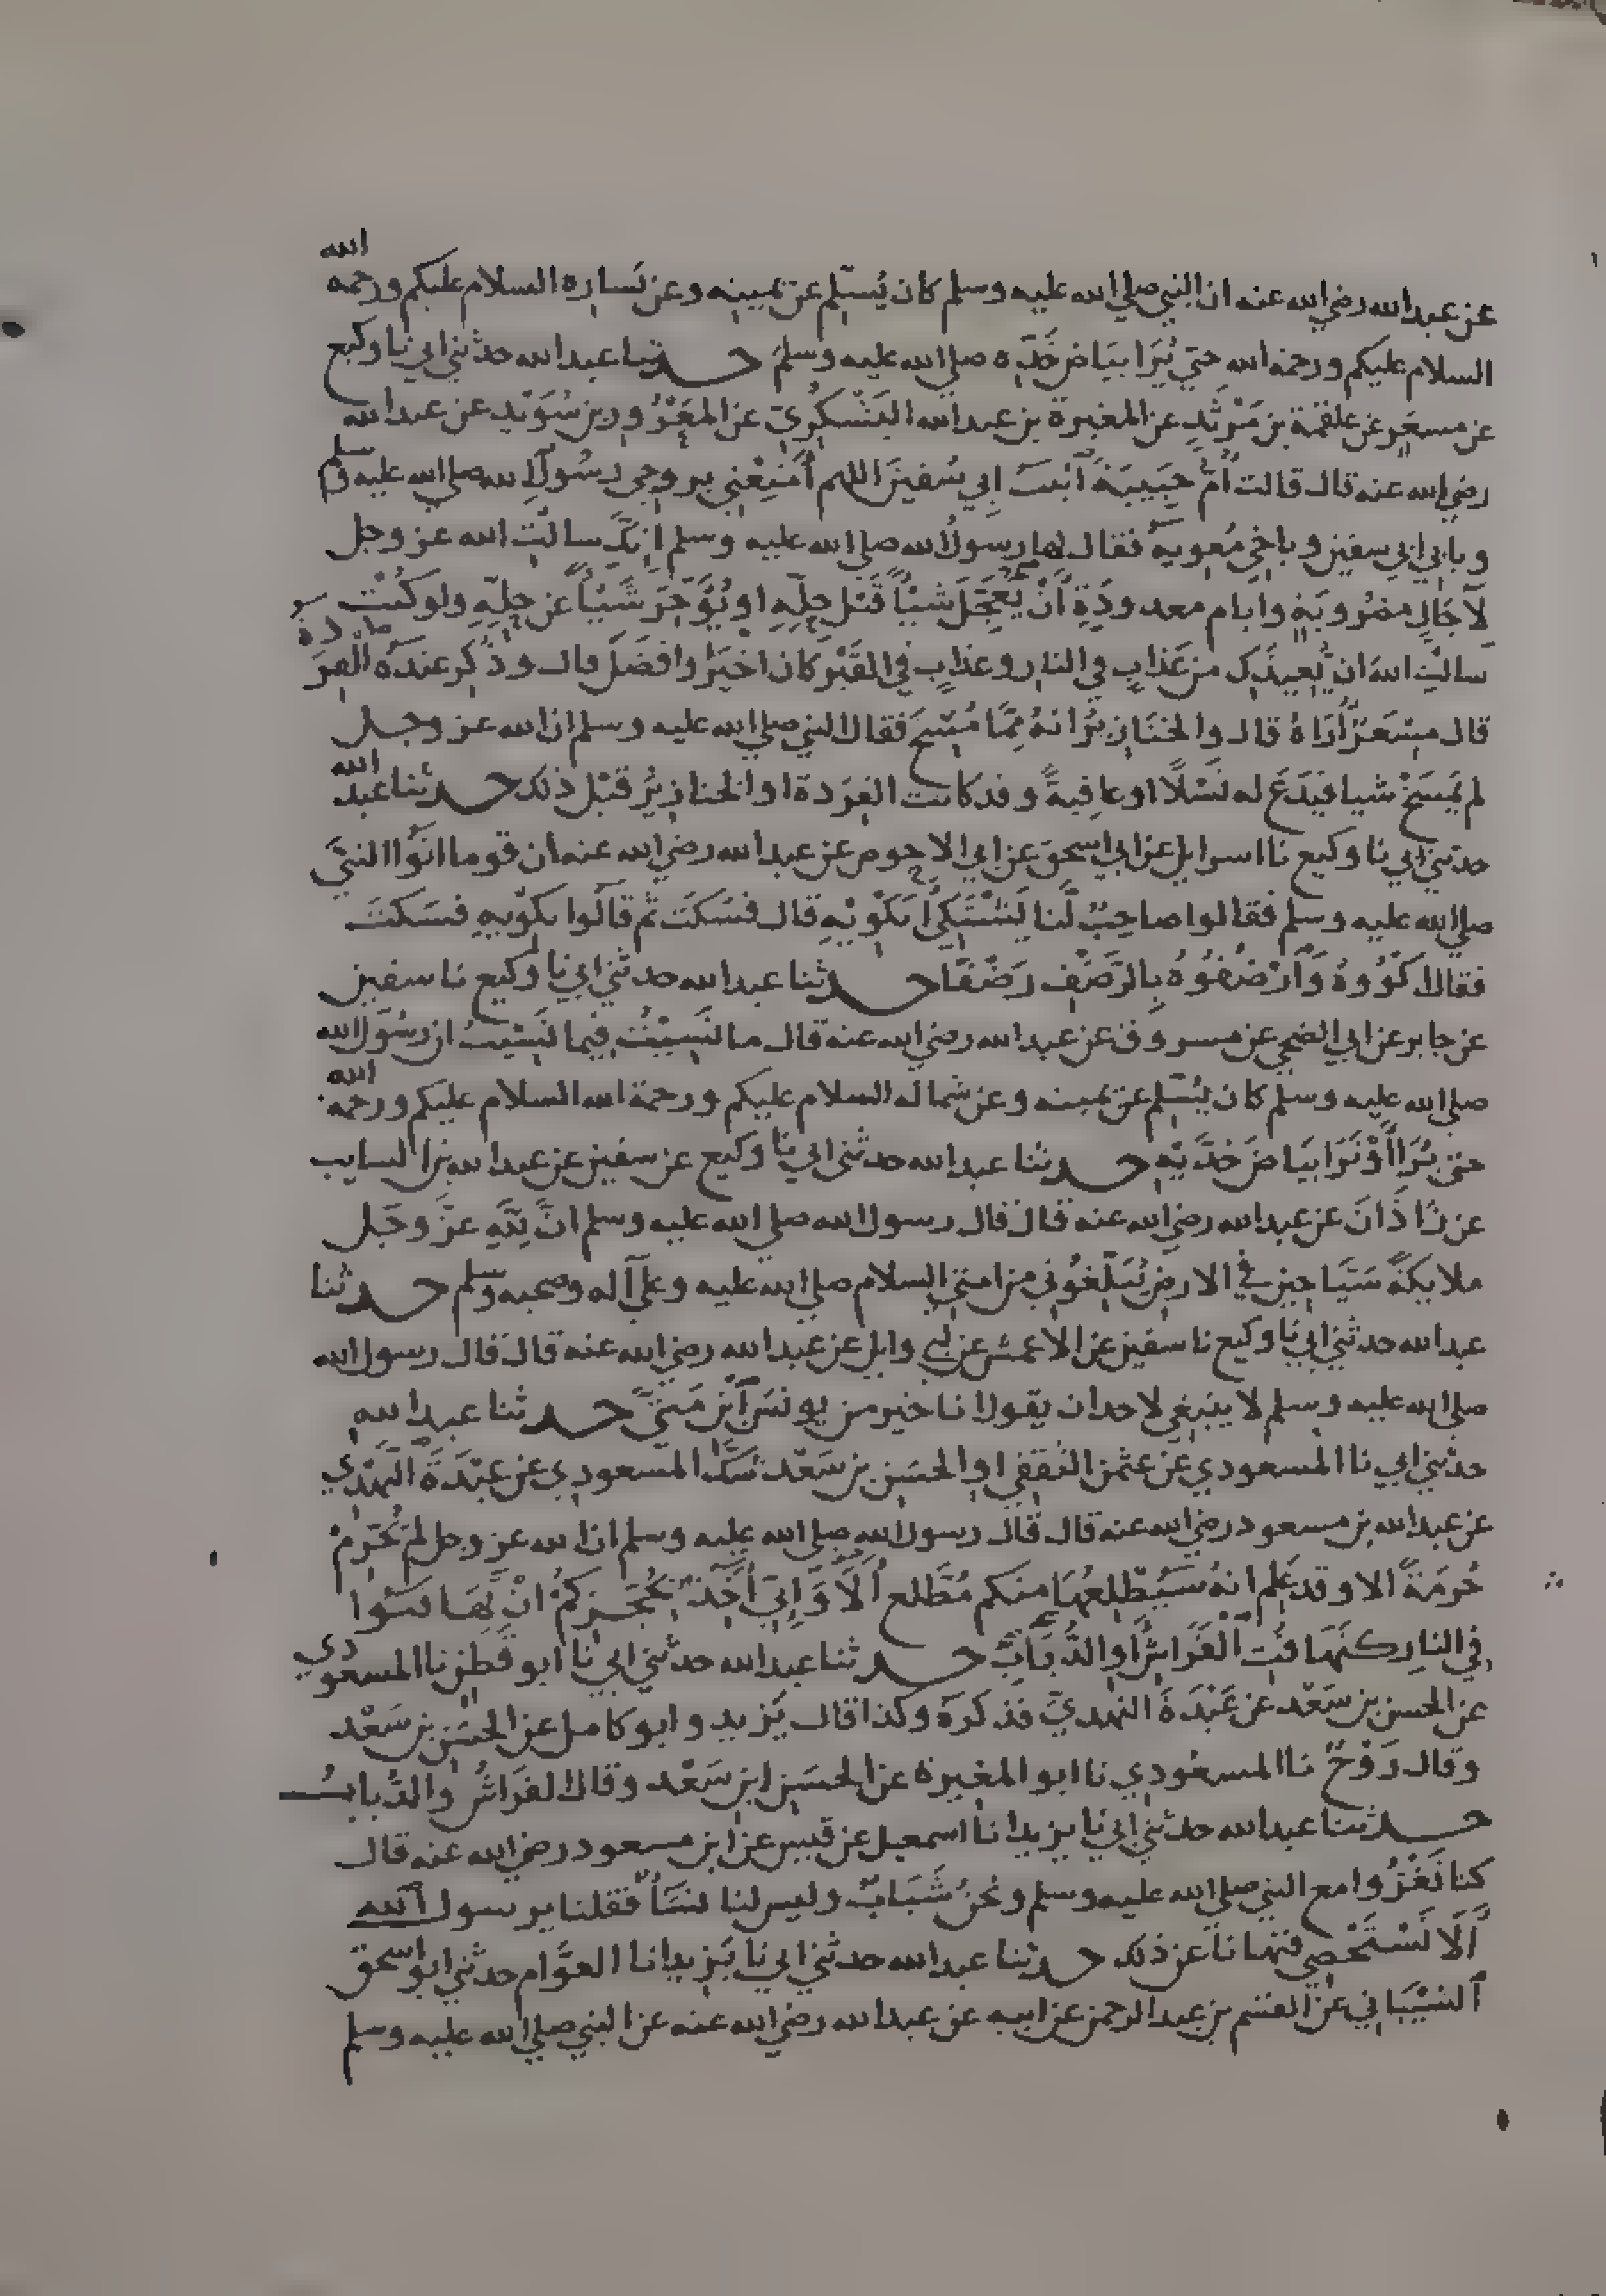 عن عبد الله رضي الله عنه ان النبي صلى الله عليه وسلم كان يُسَلّم عن يمينه وعن يَساره السلام عليكم ورحمه الله
السلام عليكم ورحمه الله حتي يُرَا بيَاض خَدِّه صلى الله عليه وسلم حدثنا عبد الله حدثني ابي نا وكيع
عن مسعَر عن علقمة بن مَرْثَدٍ عن المغيرة بن عبد الله اليَشْكُرِيّ عن المعَرُور بن سُوَيْدٍ عن عبد الله
رضي الله عنه قال قالت اُمّ حَبيبَة ابنت ابي سُفين اللهم اَمْتِعْني بزوجي رسُول الله صلى الله عليه وسلم
وبابي ابي سفين وباخي مُعويه فقال لها رسول الله صلى الله عليه وسلم انكِ سالتِ الله عز وجل
لآجَالٍ مضرُوبَةٍ وايام معدودَةِ اَنْ يُعَجِّلَ شيْأً قَبْل حِلِّهِ او يُؤَخِّرَ شَيْأً عن حِلِّهِ ولو كُنْتِ
سالْتِ الله ان يُعِيذَكِ من عَذابٍ في النار وعذابٍ في القَبْر كان اخيَرَ وافضَلَ قال وذُكِر عندَه القِرَدَة
قال مِسْعَرٌ اُرَاهُ قال والخنازيرُ انهُ مِمّا مُسِخَ فقال النبي صلى الله عليه وسلم ان الله عز وجل
لم يَمْسَخْ شيا فيَدَعَ له نَسْلًا او عاقِبةً وقد كانت القِرَدة او الخنازيرُ قَبْل ذلك حدثنا عبد الله
حدثني ابي نا وكيع نا اسرايل عن ابي اسحق عن ابي الاحوص عن عبد الله رضي الله عنه ان قوما اتَوُا النبيَّ
صلى الله عليه وسلم فقالوا صاحِبٌ لَنا يَشْتَكِي اَنَكْوِيْهِ قال فسَكَتَ ثم قالوا نكْوِيهِ فسَكَتَ
فقال اكوُوهُ وَارْضِفُوْهُ بِالرَّضْفِ رَضْفًا حدثنا عبد الله حدثني ابي نا وكيع نا سفين
عن جابر عن ابي الضحي عن مسروق عن عبد الله رضي الله عنه قال ما نَسِيْتُ فيما نَسِيْتُ ان رسُول الله
صلى الله عليه وسلم كان يُسَلّم عن يمينه وعن شماله السلام عليكم ورحمة الله السلام عليكم ورحمه الله
حتي يُرَا اَوْ نَرَا بيَاضَ خَدَّيْهِ حدثنا عبد الله حدثني ابي نا وكيع عن سفين عن عبد الله بن السايب
عن زَاذَانَ عن عبد الله رضي الله عنه قال قال رسول الله صلى الله عليه وسلم انَّ لِلّهِ عزّ وجَل
ملايكةً سَيَّاحِين في الارض يُبَلّغُوْني من امتي السلام صلى الله عليه وعلى آله وصحبه وسلم حدثنا
عبد الله حدثني ابي نا وكيع نا سفين عن الاعمش عن ابي وايل عن عبد الله رضي الله عنه قال قال رسول الله
صلى الله عليه وسلم لا ينبَغي لاحد ان يقول انا خير من يونسَ ابْن مَتّي حدثنا عبد الله
حدثني ابي نا المسعودي عن عثمن الثقفي او الحسَن بن سَعْد شكَّ المسعودي عن عبْدَةَ النهْدِي
عن عبد الله بن مسعود رضي الله عنه قال قال رسول الله صلى الله عليه وسلم ان الله عز وجل لم يُحَرِّم
حُرمَةً الا وقد عَلِم انهُ سَيُطّلِعُهَا منكم مُطَّلِع اَلَا وَاِنِّي اٰخِذٌ بِحُجَزِكمُ انْ تَهَافتُوا
في النارِ كتَهَافُتِ الفَرَاشِ اوِ الذُّبَابِ حدثنا عبد الله حدثني ابي نا ابو قَطَنٍ نا المسعودي
عن الحسن بن سَعْد عن عَبْدَةَ النهديّ فذكرَهُ وكذا قال يَزيد وابو كامل عن الحسَن بن سَعْد
وقال رَوْحٌ نا المسعُودي نا ابو المغيرة عن الحسَن ابن سَعْد وقال الفرَاشُ والذُبابُ
حدثنا عبد الله حدثني ابي نا يزيد انا اسمعيل عن قيس عن ابن مسعود رضي الله عنه قال
كنا نَغْزُوا مع النبي صلى الله عليه وسلم ونحْنُ شَبَابٌ وليس لنا نسَاٌ فقلنا يرسول الله
اَلَا نَسْتَخْصِي فنهانَا عن ذلك حدثنا عبد الله حدثني ابي نا يَزيد انا العَوَّام حدثني ابو اسحق
الشيْبَاني عن القسم بن عبد الرحمن عن ابيه عن عبد الله رضي الله عنه عن النبي صلى الله عليه وسلم